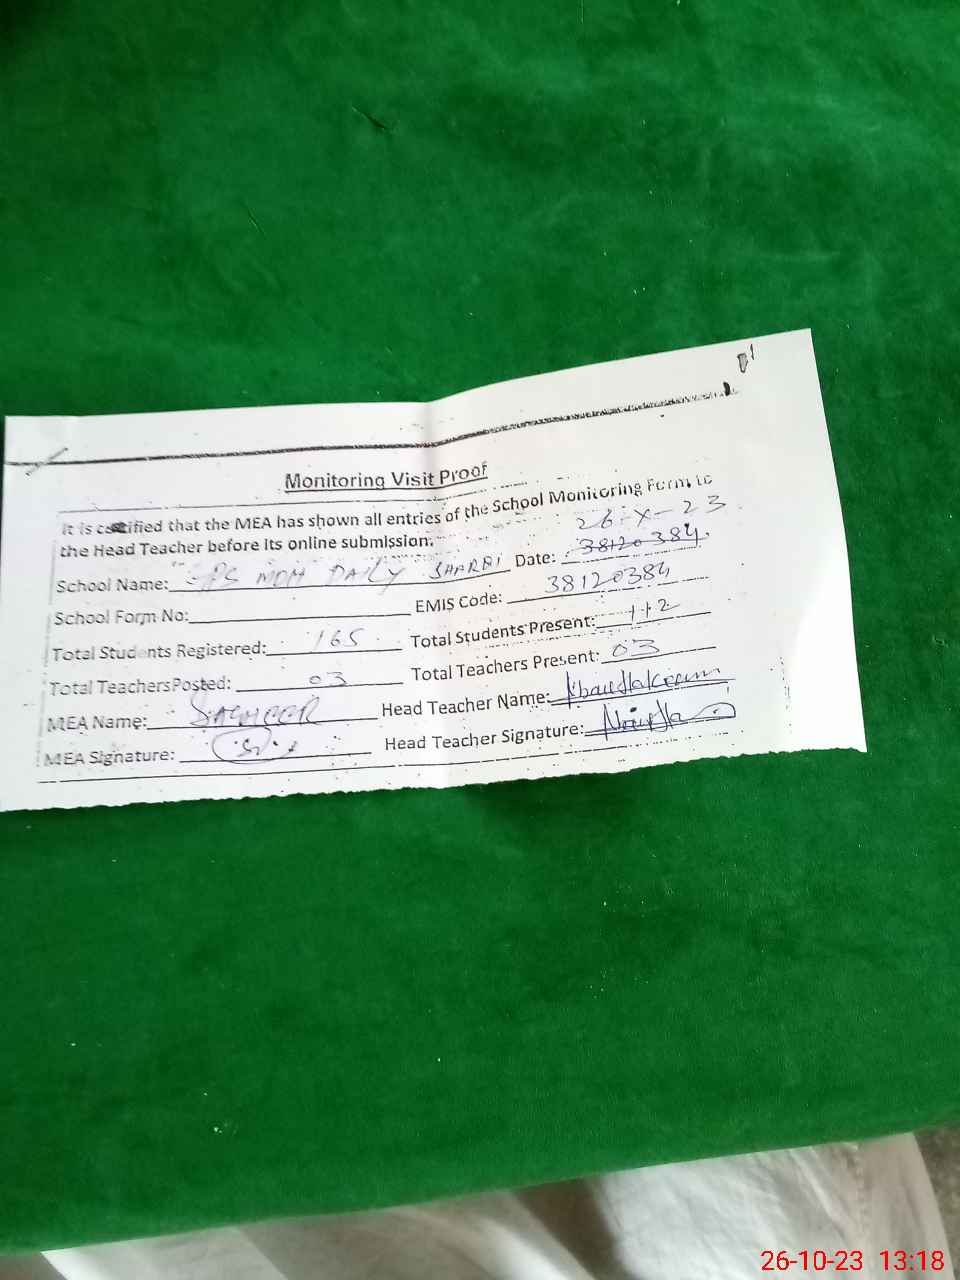 Monitoring Visit Proof
It is certified that the MEA has shown all entries of the School Monitoring Form to
the Head Teacher before its online submission.
26-X-23
School Name: PS MDM DAILY Date: 38120384
School Form No: EMIS Code: 38120384
Total Students Registered: 165 Total Students Present: 112
Total Teachers Posted: 03 Total Teachers Present: 03
MEA Name: SAGHEER Head Teacher Name:
MEA Signature: Head Teacher Signature:
26-10-23 13:18